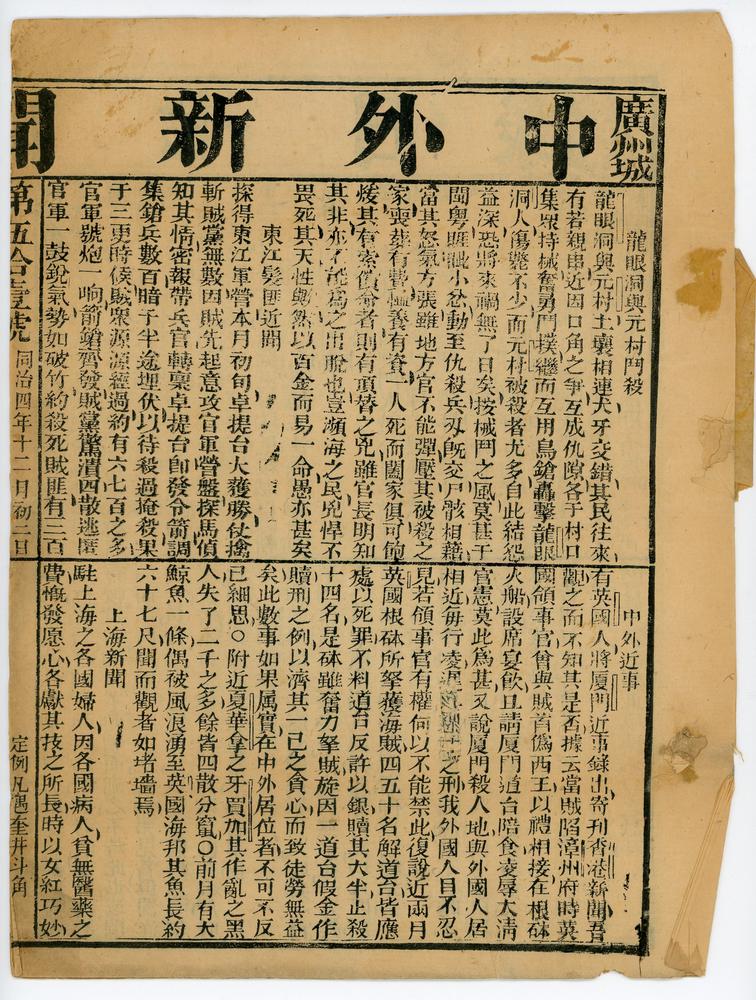 廣州城
中外新聞
龍眼洞與元村鬥殺
龍眼洞與元村土壤相連犬牙交錯其民往來
有若親串近因口角之爭互成仇隙各于村口
集眾持械奮勇鬥撲繼而互用鳥鎗轟擊龍眼
洞人傷斃不少而元村被殺者尤多自此結怨
益深恐將來禍無了日矣按械鬥之風莫甚于
閩粵睚眦小忿動至仇殺兵刃旣交尸骸相藉
當其怒氣方張雖地方官不能彈壓其被殺之
家喪葬有費恤養有資一人死而闔家俱可飽
煖其有索償命者則有頂替之兇雖官長明知
其非亦不能爲之出脫也豈瀕海之民兇悍不
畏死其天性歟然以百金而易一命愚亦甚矣
東江髮匪近聞
探得東江軍營本月初旬卓提台大獲勝仗擒
斬賊黨無數因賊先起意攻官軍營盤探馬偵
知其情密報帶兵官轉稟卓提台卽發令箭調
集鎗兵數百暗于半途埋伏以待殺過掩殺果
于三更時候賊眾源源經過約有六七百之多
官軍號炮一响箭鎗齊發賊黨驚潰四散逃匿
官軍一鼓銳氣勢如破竹約殺死賊匪有三百
中外近事
有英國人將厦門近事錄出寄刋香港新聞吾
觀之而不知其是否據云當賊陷漳州府時英
國領事官曾與賊首僞西王以禮相接在根砵
火船設席宴飲且請厦門道台陪食凌辱大清
官憲莫此爲甚又說厦門殺人地與外國人居
相近每行凌遲之刑我外國人目不忍
見若領事官有權何以不能禁此復說近兩月
英國根砵所拏獲海賊四五十名解道台皆應
處以死罪不料道台反許以銀贖其大半止殺
十四名是砵雖奮力拏賊旋因一道台假金作
贖刑之例以濟其一已之貪心而致徒勞無益
矣此數事如果属實在中外居位者不可不反
已細思○附近夏華拿之牙買加其作亂之黑
人失了二千之多餘皆四散分竄○前月有大
鯨魚一條偶被風浪湧至英國海邦其魚長約
六十七尺聞而觀者如堵墻焉
上海新聞
駐上海之各國婦人因各國病人貧無醫藥之
費慨發愿心各獻其技之所長時以女紅巧妙
第五拾壹號
同治四年十二月初二日
定例凡遇奎井斗角